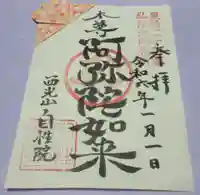 奉拝
令和六年一月一日
本尊
阿弥陀如来
西光山自性院